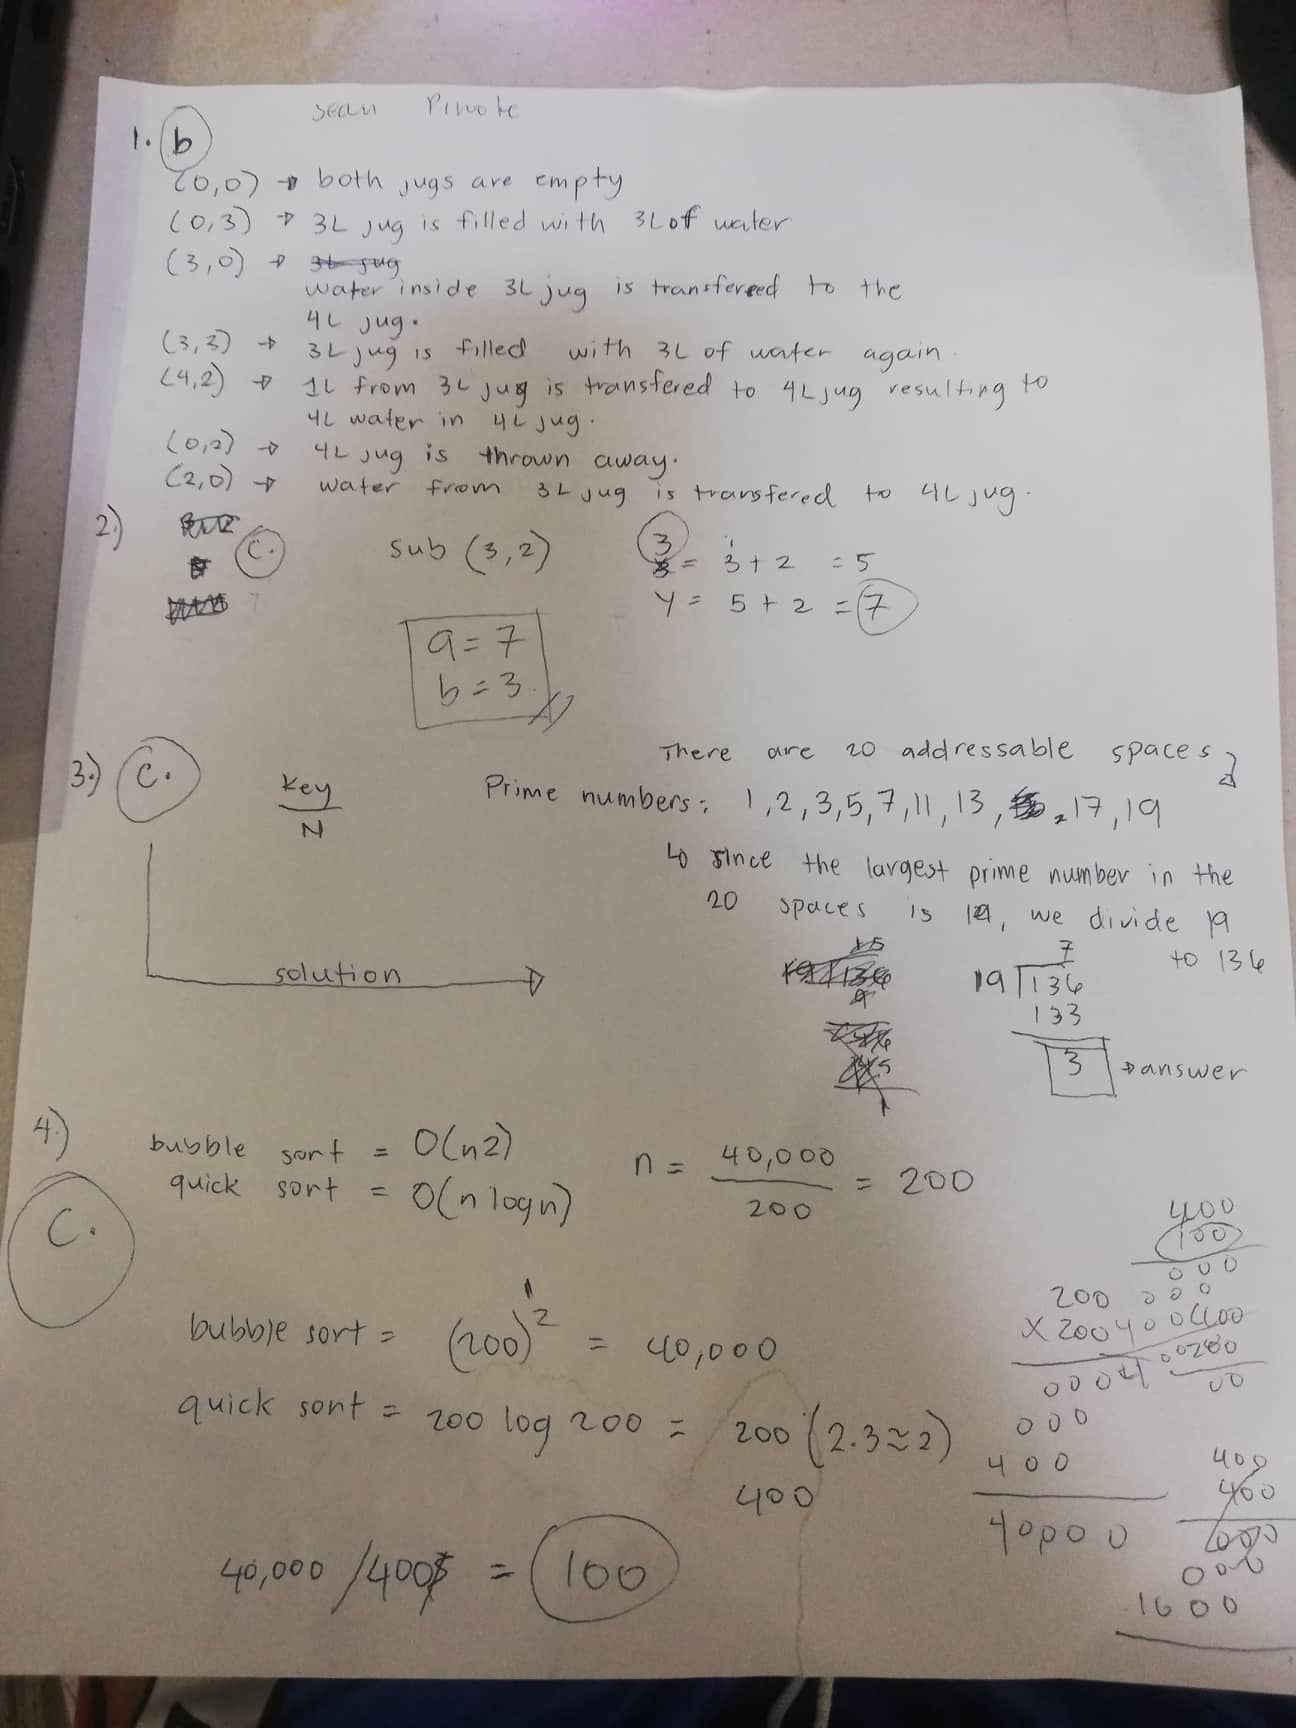 sean Pinote
1. b
(0,0) → both jugs are empty
(0,3) → 3L jug is filled with 3L of water
(3,0) → 3L jug
water inside 3L jug is transfereed to the
4L jug.
(3,3) → 3L jug is filled with 3L of water again.
(4,2) → 1L from 3L jug is transfered to 4L jug resulting to
4L water in 4L jug.
(0,2) → 4L jug is thrown away.
(2,0) → water from 3L jug is transfered to 4L jug.
2.) C. sub (3,2) 3 = 3+2 = 5
y = 5+2 = 7
a = 7
b = 3
3.) C. There are 20 addressable spaces
Key
N
Prime numbers: 1,2,3,5,7,11,13, 17,19
↳ since the largest prime number in the
20 spaces is 19, we divide 19
to 136
solution
7
19 136
133
3 → answer
4.) C.
bubble sort = O(n2)
quick sort = O(n logn)
n = 40,000 / 200 = 200
bubble sort = (200)^2 = 40,000
quick sort = 200 log 200 = 200 (2.3≈2)
400
40,000 / 400 = 100
400
100
000
000
200
X 200
000
000
400
40000
400
400
000
000
1600